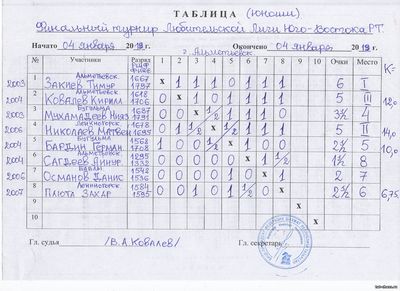 ТАБЛИЦА (юноши)
Финальный турнир Любительской Лиги Юго-Востока РТ.
г. Альметьевск
Начато 04 января 2019 г. Окончено 04 января 2019 г.
№ Участники Разряд РШФ ФИДЕ 1 2 3 4 5 6 7 8 9 10 Очки Место К=
2003 1 Альметьевск Закиев Тимур 1667 1797 х 1 1 1 0 1 1 1 6 I 12,0
2004 2 Альметьевск Ковалев Кирилл 1618 1706 0 х 1 0 1 1 1 1 5 III
2003 3 Бугульма Мухамадеев Нияз 1687 1791 0 0 х 1/2 1 1 1 0 3½ 4
2006 4 Лениногорск Николаев Матвей 1678 1695 0 1 1/2 х 1 1 1 1/2 5 II 14,0
2004 5 Бугульма Бардин Герман 1568 1708 1 0 0 0 х 1/2 1 0 2½ 5 10,0
2004 6 Альметьевск Сагдеев Айнур 1295 1332 0 0 0 0 1/2 х 1 0 1½ 8
2006 7 Бавлы Османов Данис 1542 1536 0 0 0 0 0 0 х 2 7
2007 8 Лениногорск Плюта Захар 1584 1595 0 0 1 0 1 1/2 0 х 2½ 6 6,75
9 х
10 х
Гл. судья /В.А.Ковалев/ Гл. секретарь